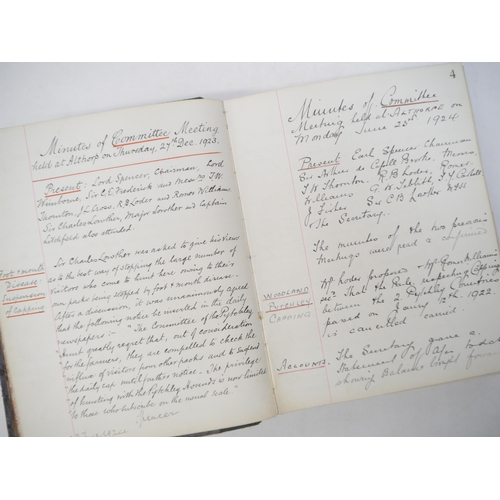 Minutes of Committee Meeting
held at Althorp on Thursday, 27th Dec. 1923.
Present: Lord Spencer, Chairman, Lord
Wimborne, Sir C E Frederick and Messrs J.W.
Thornton, J L Cross, R B Loder and Renos Williams.
Sir Charles Lowther, Major Lowther and Captain
Lithfield also attended.
Foot & mouth
Disease.
Suspension
of Capping
Sir Charles Lowther was asked to give his view
as to the best way of stopping the large number of
visitors who come to hunt here, owing to their
own packs being stopped by foot & mouth disease.
After a discussion, it was unanimously agreed
that the following notice be inserted in the daily
newspapers :- "The Committee of the Pytchley
Hunt greatly regret that, out of consideration
for the farmers, they are compelled to check the
influx of visitors from other packs and to suspend
the daily cap until further notice. The privilege
of hunting with the Pytchley Hounds is now limited
to those who subscribe on the usual scale."
Spencer
4
Minutes of Committee
Meeting held at Althorp on
Monday June 1924.
Present Earl Spencer Chairman
Sir Brooke, Messrs
T W Thornton, R B Loder, Renos
Williams G. W.
J Fisher Sir C B Lowther &
The Secretary.
The minutes of the two previous
Meetings were read & confirmed
Woodland
Pytchley
Capping
Mr Loder proposed & Mr Renos Williams
That the Rule respecting Capping
between the 2 Pytchley Countries
passed on Jany 12th 1922
is cancelled carried.
Accounts.
The Secretary gave a
Statement of
showing Balance